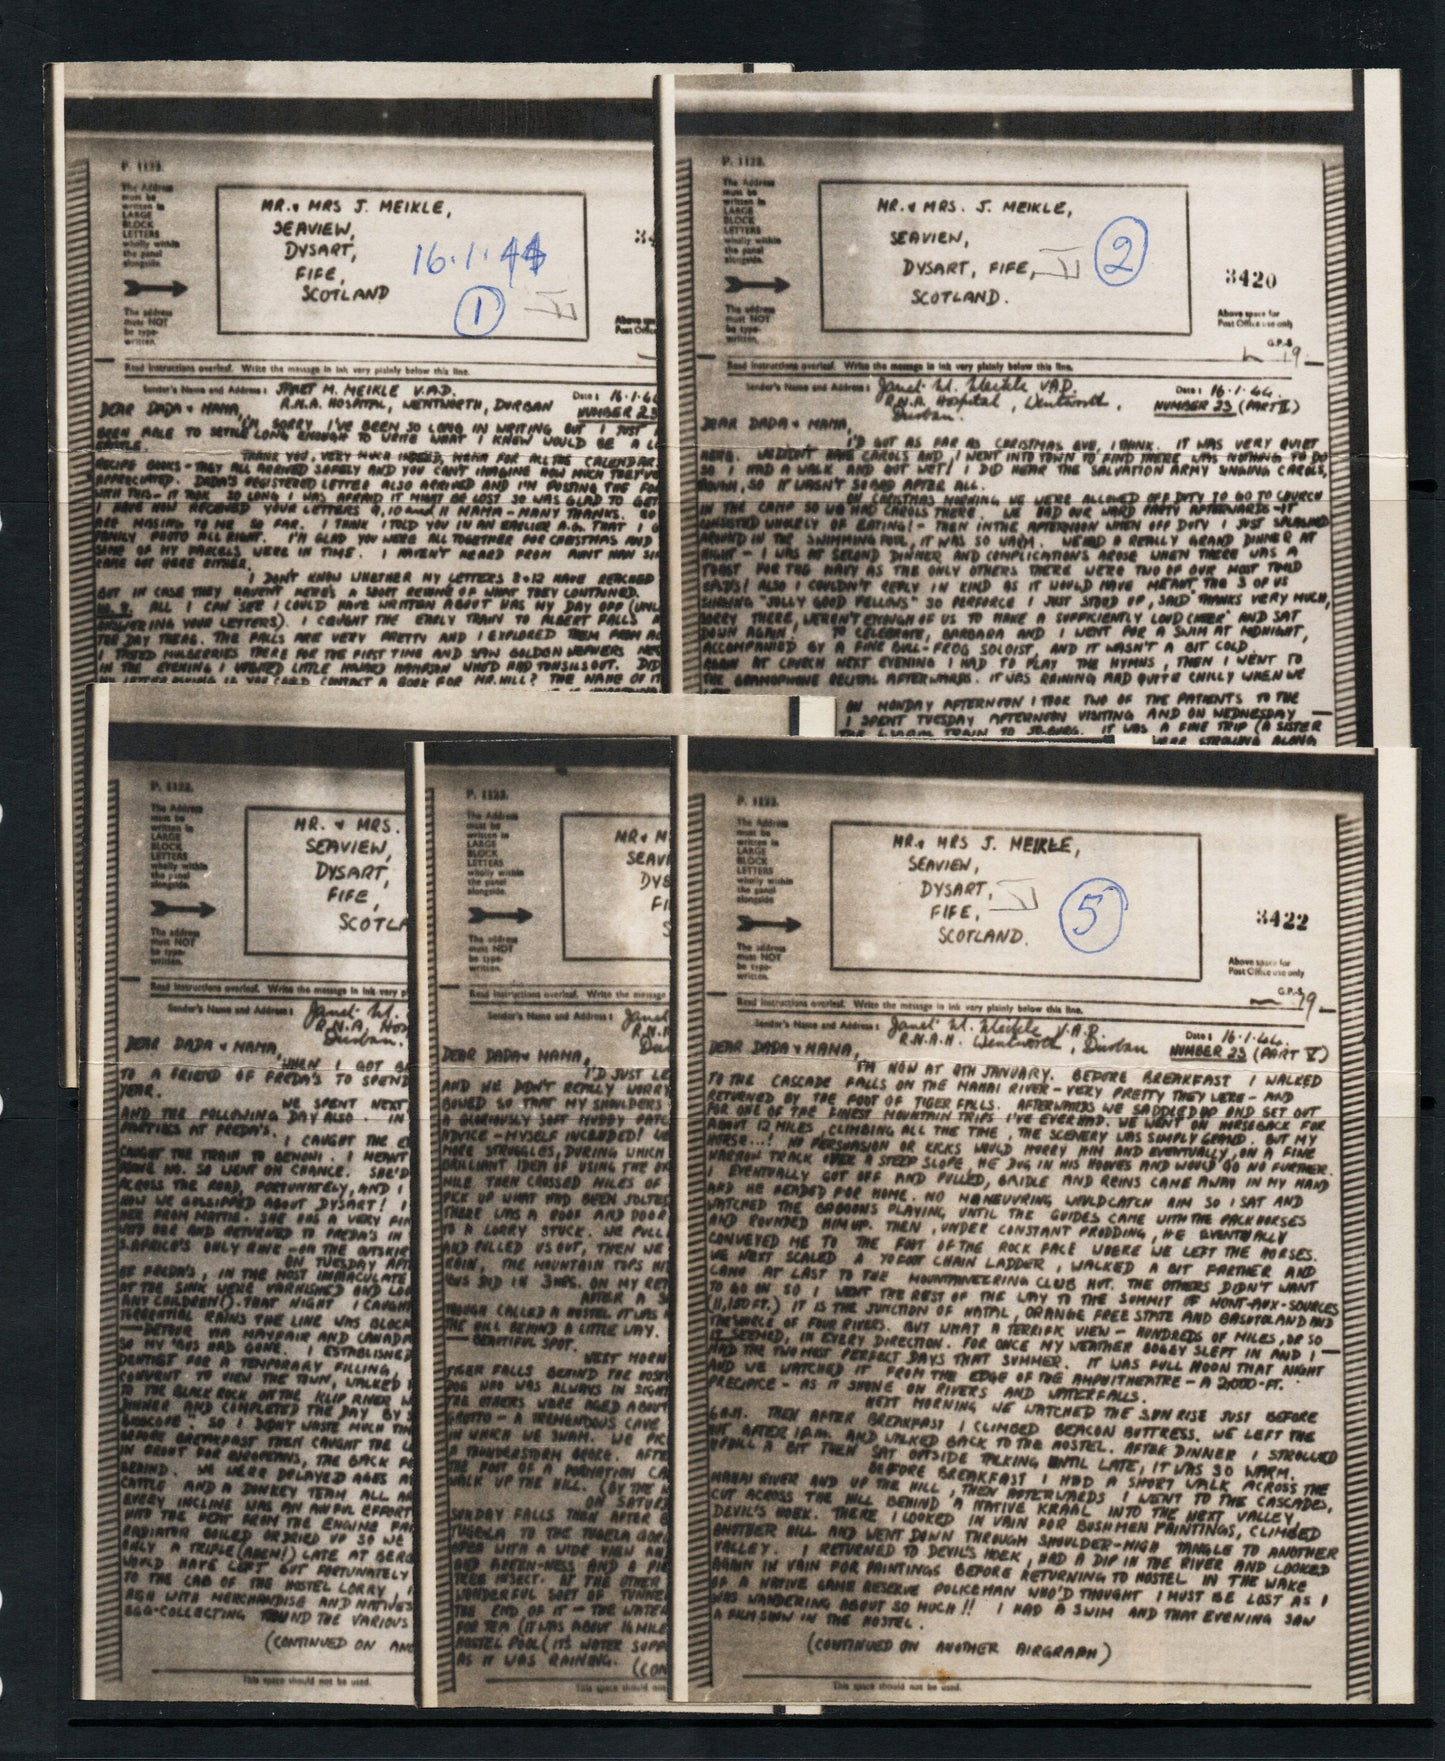 P. 1122.
The Address
must be
written in
LARGE
BLOCK
LETTERS
wholly within
the panel
alongside.
The address
must NOT
be type-
written.
MR. & MRS J. MEIKLE,
SEAVIEW,
DYSART,
FIFE,
SCOTLAND
16.1.44
1
34
Above space for
Post Office
Read instructions overleaf. Write the message in ink very plainly below this line.
Sender's Name and Address: JANET M. MEIKLE V.A.D.
R.N.A. HOSPITAL, WENTWORTH, DURBAN
Date: 16.1.4
NUMBER 23
DEAR DADA & MAMA,
I'M SORRY I'VE BEEN SO LONG IN WRITING BUT I JUST
BEEN ABLE TO SETTLE LONG ENOUGH TO WRITE WHAT I KNEW WOULD BE A
THANK YOU, VERY MUCH INDEED, MAMA FOR ALL THE CALENDAR
RECIPE BOOKS - THEY ALL ARRIVED SAFELY AND YOU CAN'T IMAGINE HOW MUCH THEY'VE
APPRECIATED. DADA'S REGISTERED LETTER ALSO ARRIVED AND I'M POSTING THE
WITH THIS - IT TOOK SO LONG I WAS AFRAID IT MIGHT BE LOST SO WAS GLAD TO GET
I HAVE NOW RECEIVED YOUR LETTERS 9, 10 and 11 MAMA - MANY THANKS.
ARE MISSING TO ME SO FAR. I THINK I TOLD YOU IN AN EARLIER A.G. THAT I
FAMILY PHOTO ALL RIGHT. I'M GLAD YOU WERE ALL TOGETHER FOR CHRISTMAS AND
SOME OF MY PARCELS WERE IN TIME. I HAVEN'T HEARD FROM AUNT NAN
CAME OUT HERE EITHER.
I DON'T KNOW WHETHER MY LETTERS 8 & 12 HAVE REACHED
BUT IN CASE THEY HAVEN'T HERE'S A SORT OF WHAT THEY CONTAINED.
ALL I CAN SEE I COULD HAVE WRITTEN ABOUT WAS MY DAY OFF
ANSWERING YOUR LETTERS). I CAUGHT THE EARLY TRAIN TO ALBERT FALLS
THE DAY THERE. THE FALLS ARE VERY PRETTY AND I EXPLORED THEM FROM
I TASTED MULBERRIES THERE FOR THE FIRST TIME AND SAW GOLDEN WEAVERS
IN THE EVENING I VISITED LITTLE WHO'D HAD TONSILS OUT. DID
YOU COULD CONTACT A BOOK FOR MR. HILL? THE NAME OF IT
P. 1122.
The Address
must be
written in
LARGE
BLOCK
LETTERS
wholly within
the panel
alongside.
The address
must NOT
be type-
written.
MR. & MRS. J. MEIKLE,
SEAVIEW,
DYSART, FIFE,
SCOTLAND.
2
3420
Above space for
Post Office use only
G.P.S
19
Read instructions overleaf. Write the message in ink very plainly below this line.
Sender's Name and Address: Janet M. Meikle V.A.D.
R.N.A. Hospital, Wentworth,
Durban.
Date: 16.1.44.
NUMBER 23 (PART II)
DEAR DADA & MAMA,
I'D GOT AS FAR AS CHRISTMAS EVE, I THINK. IT WAS VERY QUIET
HERE. WE DIDN'T HAVE CAROLS AND I WENT INTO TOWN TO FIND THERE WAS NOTHING TO DO
SO I HAD A WALK AND GOT WET! I DID HEAR THE SALVATION ARMY SINGING CAROLS,
THOUGH, SO IT WASN'T SO BAD AFTER ALL.
ON CHRISTMAS MORNING WE WERE ALLOWED OFF DUTY TO GO TO CHURCH
IN THE CAMP SO WE HAD CAROLS THERE. WE HAD OUR WARD PARTY AFTERWARDS - IT
CONSISTED WHOLELY OF EATING! - THEN IN THE AFTERNOON WHEN OFF DUTY I JUST SPLASHED
AROUND IN THE SWIMMING POOL, IT WAS SO WARM. WE HAD A REALLY GRAND DINNER AT
NIGHT - I WAS AT SECOND DINNER AND COMPLICATIONS AROSE WHEN THERE WAS A
TOAST FOR THE NAVY AS THE ONLY OTHERS THERE WERE TWO OF OUR MOST TIMID
ALSO I COULDN'T REPLY IN KIND AS IT WOULD HAVE MEANT THE 3 OF US
SINGING "JOLLY GOOD FELLOWS" SO PERFORCE I JUST STOOD UP, SAID THANKS VERY MUCH,
SORRY THERE, WEREN'T ENOUGH OF US TO MAKE A SUFFICIENTLY LOUD CHEER" AND SAT
DOWN AGAIN! TO CELEBRATE, BARBARA AND I WENT FOR A SWIM AT MIDNIGHT,
ACCOMPANIED BY A FINE BULL-FROG SOLOIST, AND IT WASN'T A BIT COLD.
AGAIN AT CHURCH NEXT EVENING I HAD TO PLAY THE HYMNS, THEN I WENT TO
THE GRAMOPHONE RECITAL AFTERWARDS. IT WAS RAINING AND QUITE CHILLY WHEN WE
ON MONDAY AFTERNOON I TOOK TWO OF THE PATIENTS TO THE
I SPENT TUESDAY AFTERNOON VISITING AND ON WEDNESDAY —
TRAIN TO JO-BURG. IT WAS A FINE TRIP (A SISTER
WERE STROLLING ALONG
P. 1122.
The Address
must be
written in
LARGE
BLOCK
LETTERS
wholly within
the panel
alongside.
The address
must NOT
be type-
written.
MR. & MRS.
SEAVIEW,
DYSART,
FIFE,
SCOTLA
Read instructions overleaf. Write the message in ink very p
Sender's Name and Address: Janet M.
R.N.A. Hos
Durban.
DEAR DADA & MAMA,
WHEN I GOT
TO A FRIEND OF FREDA'S TO SPEND
YEAR.
WE SPENT NEXT
AND THE FOLLOWING DAY ALSO. IN
PARTIES AT FREDA'S.
I CAUGHT THE
CAUGHT THE TRAIN TO BENONI. I MEANT
PHONE NO. SO WENT ON CHANCE. SHE'D
ACROSS THE ROAD, FORTUNATELY, AND I
HOW WE GOSSIPPED ABOUT DYSART! I
HER FROM MATTIE. SHE HAS A VERY FIN
AND RETURNED TO FREDA'S IN
S. AFRICA'S ONLY - ON THE OUTSKIR
ON TUESDAY AFT
OF FREDA'S, IN THE MOST IMMACULATE
AT THE SINK WERE VARNISHED AND LOO
ANY CHILDREN!). THAT NIGHT I CAUGH
TORRENTIAL RAINS THE LINE WAS BLOCK
- DETOUR VIA MAYFAIR AND CANADA
SO MY 'BUS HAD GONE. I ESTABLISHED
DENTIST FOR A TEMPORARY FILLING,
CONVENT TO VIEW THE TOWN, WALKED
TO THE BLACK ROCK ON THE KLIP RIVER
DINNER AND COMPLETED THE DAY BY
BIOSCOPE" SO I DIDN'T WASTE MUCH TIM
BEFORE BREAKFAST THEN CAUGHT THE
IN FRONT FOR EUROPEANS, THE BACK
BEHIND. WE WERE DELAYED AGES
CATTLE AND A DONKEY TEAM ALL
EVERY INCLINE WAS AN AWFUL EFFORT
INTO THE HEAT FROM THE ENGINE
RADIATOR BOILED DRIED UP SO WE
ONLY A TRIFLE (AHEM!) LATE AT BERG
WOULD HAVE LEFT BUT FORTUNATELY
TO THE CAB OF THE HOSTEL LORRY,
WITH MERCHANDISE AND NATIVES
EGG-COLLECTING ROUND THE VARIOUS
(CONTINUED ON ANO
This space should not be used.
P. 1122.
The Address
must be
written in
LARGE
BLOCK
LETTERS
wholly within
the panel
alongside.
The address
must NOT
be type-
written.
MR & M
SEAVI
DYS
FI
S
Read instructions overleaf. Write the message
Sender's Name and Address: Janet
R.N.
Du
DEAR DADA & MAMA,
I'D JUST LE
AND HE DIDN'T REALLY WORRY
BOWED SO THAT MY SHOULDERS
A GLORIOUSLY SOFT MUDDY PATC
ADVICE - MYSELF INCLUDED!
MORE STRUGGLES, DURING WHICH
BRILLIANT IDEA OF USING THE
MILE THEN CROSSED MILES OF
PICK UP WHAT HAD BEEN JOLTE
THERE WAS A ROOF AND DOOR
TO A LORRY STUCK. WE PULL
AND PULLED US OUT, THEN WE
RAIN, THE MOUNTAIN TOPS HI
WAS DID IN 3 HRS. ON MY RET
AFTER A
THOUGH CALLED A HOSTEL IT WAS
THE HILL BEHIND A LITTLE WAY.
— BEAUTIFUL SPOT.
NEXT MORN
TIGER FALLS BEHIND THE HOST
DOG WHO WAS ALWAYS IN SIGHT
THE OTHERS WERE AGED ABOUT
GROTTO - A TREMENDOUS CAVE
IN WHICH WE SWAM. WE PIC
A THUNDERSTORM BROKE. AFTE
THE FOOT OF A FORMATION CA
WALK UP THE HILL. (BY THE
ON SATUR
SUNDAY FALLS THEN AFTER
TUGELA TO THE TUGELA GOR
OPEN WITH A WIDE VIEW AN
AND GREEN-NESS AND A PI
TREE INSECT. AT THE OTHER
WONDERFUL SORT OF TUNNE
THE END OF IT - THE WATER
FOR TEA (IT WAS ABOUT 16 MILE
HOSTEL POOL (ITS WATER SUPP
AS IT WAS RAINING. (CON
This space should not be
P. 1122.
The Address
must be
written in
LARGE
BLOCK
LETTERS
wholly within
the panel
alongside.
The address
must NOT
be type-
written.
MR. & MRS J. MEIKLE,
SEAVIEW,
DYSART,
FIFE,
SCOTLAND.
5
3422
Above space for
Post Office use only
G.P.S
19
Read instructions overleaf. Write the message in ink very plainly below this line.
Sender's Name and Address: Janet M. Meikle V.A.D.
R.N.A.H. Wentworth, Durban
Date: 16.1.44.
NUMBER 23 (PART V)
DEAR DADA & MAMA,
I'M NOW AT 9TH JANUARY. BEFORE BREAKFAST I WALKED
TO THE CASCADE FALLS ON THE MAHAI RIVER - VERY PRETTY THEY WERE - AND
RETURNED BY THE FOOT OF TIGER FALLS. AFTERWARDS WE SADDLED UP AND SET OUT
FOR ONE OF THE FINEST MOUNTAIN TRIPS I'VE EVER HAD. WE WENT ON HORSEBACK FOR
ABOUT 12 MILES, CLIMBING ALL THE TIME, THE SCENERY WAS SIMPLY GRAND. BUT MY
HORSE...! NO PERSUASION OR KICKS WOULD HURRY HIM AND EVENTUALLY, ON A FINE
NARROW TRACK OVER A STEEP SLOPE, HE DUG IN HIS HOOVES AND WOULD GO NO FURTHER.
I EVENTUALLY GOT OFF AND PULLED, BRIDLE AND REINS CAME AWAY IN MY HAND
AND HE HEADED FOR HOME. NO MANEUVRING WOULD CATCH HIM SO I SAT AND
WATCHED THE BABOONS PLAYING, UNTIL THE GUIDES CAME WITH THE PACK HORSES
AND ROUNDED HIM UP. THEN, UNDER CONSTANT PRODDING, HE EVENTUALLY
CONVEYED ME TO THE FOOT OF THE ROCK FACE WHERE WE LEFT THE HORSES.
WE NEXT SCALED A 70 FOOT CHAIN LADDER, WALKED A BIT FARTHER AND
CAME AT LAST TO THE MOUNTAINEERING CLUB HUT. THE OTHERS DIDN'T WANT
TO GO ON SO I WENT THE REST OF THE WAY TO THE SUMMIT OF MONT-AUX-SOURCES
(11,150 FT.) IT IS THE JUNCTION OF NATAL, ORANGE FREE STATE AND BASUTOLAND AND
THE SOURCE OF FOUR RIVERS. BUT WHAT A TERRIFIC VIEW - HUNDREDS OF MILES, OR SO
IT SEEMED, IN EVERY DIRECTION. FOR ONCE MY WEATHER BOGEY SLEPT IN AND I —
HAD THE TWO MOST PERFECT DAYS THAT SUMMER. IT WAS FULL MOON THAT NIGHT
AND WE WATCHED IT FROM THE EDGE OF THE AMPHITHEATRE - A 2,000-FT.
PRECIPICE - AS IT SHONE ON RIVERS AND WATERFALLS.
NEXT MORNING WE WATCHED THE SUN RISE JUST BEFORE
6 A.M. THEN AFTER BREAKFAST I CLIMBED BEACON BUTTRESS. WE LEFT THE
HUT AFTER 10 A.M. AND WALKED BACK TO THE HOSTEL. AFTER DINNER I STROLLED
UPHILL A BIT THEN SAT OUTSIDE TALKING UNTIL LATE, IT WAS SO WARM.
BEFORE BREAKFAST I HAD A SHORT WALK ACROSS THE
MAHAI RIVER AND UP THE HILL, THEN AFTERWARDS I WENT TO THE CASCADES,
CUT ACROSS THE HILL BEHIND A NATIVE KRAAL INTO THE NEXT VALLEY,
DEVIL'S HOEK. THERE I LOOKED IN VAIN FOR BUSHMEN PAINTINGS, CLIMBED
ANOTHER HILL AND WENT DOWN THROUGH SHOULDER-HIGH TANGLE TO ANOTHER
VALLEY. I RETURNED TO DEVIL'S HOEK, HAD A DIP IN THE RIVER AND LOOKED
AGAIN IN VAIN FOR PAINTINGS BEFORE RETURNING TO HOSTEL IN THE WAKE
OF A NATIVE GAME RESERVE POLICEMAN WHO'D THOUGHT I MUST BE LOST AS I
WAS WANDERING ABOUT SO MUCH!! I HAD A SWIM AND THAT EVENING SAW
A FILM SHOW IN THE HOSTEL.
(CONTINUED ON ANOTHER AIRGRAPH)
This space should not be used.